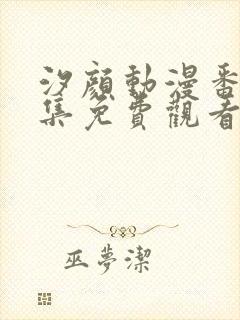 汐顏動漫番
集免費觀看
巫夢潔